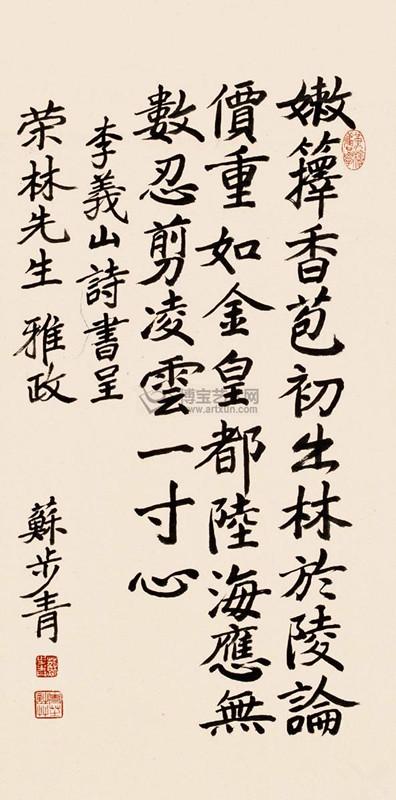 嫩籜香苞初出林於陵論
價重如金皇都陸海應無
數忍剪凌雲一寸心
李義山詩書呈
荣林先生雅政
蘇步青
博宝艺术网
www.artxun.com